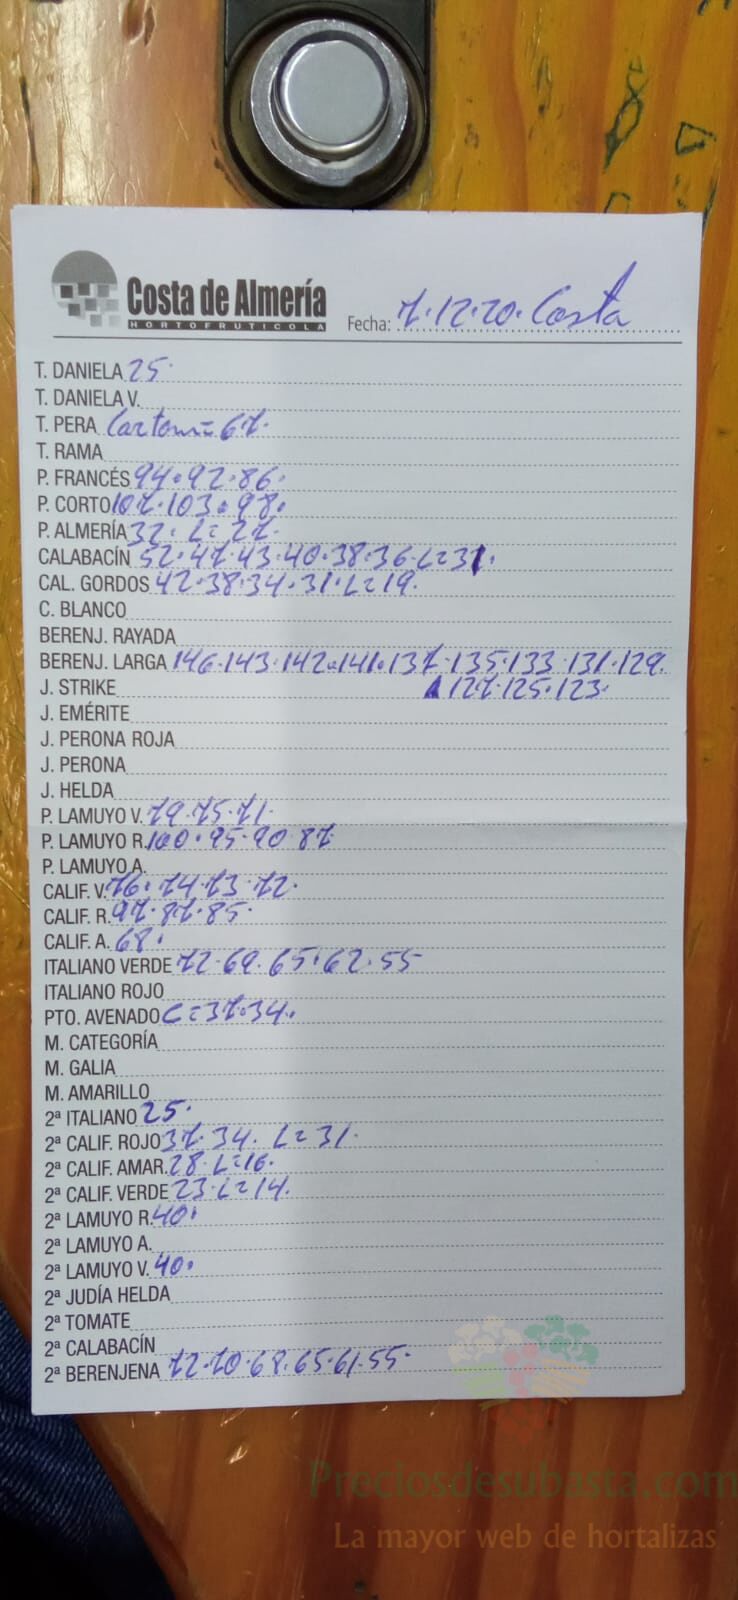 Costa de Almería
HORTOFRUTICOLA
Fecha: 7.12.20. Costa
T. DANIELA 25.
T. DANIELA V.
T. PERA Carton=67.
T. RAMA
P. FRANCÉS 94.92.86.
P. CORTO 107.103.98.
P. ALMERÍA 32. L=27.
CALABACÍN 52.47.43.40.38.36.L=31.
CAL. GORDOS 42.38.34.31.L=19.
C. BLANCO
BERENJ. RAYADA
BERENJ. LARGA 146.143.142.141.137.135.133.131.129.
J. STRIKE 127.125.123.
J. EMÉRITE
J. PERONA ROJA
J. PERONA
J. HELDA
P. LAMUYO V. 79.75.71.
P. LAMUYO R. 100.95.90.87
P. LAMUYO A.
CALIF. V. 76.74.73.72.
CALIF. R. 97.87.85.
CALIF. A. 68.
ITALIANO VERDE 72.69.65.62.55
ITALIANO ROJO
PTO. AVENADO C=37.34.
M. CATEGORÍA
M. GALIA
M. AMARILLO
2ª ITALIANO 25.
2ª CALIF. ROJO 37.34. L=31.
2ª CALIF. AMAR. 28.L=16.
2ª CALIF. VERDE 23.L=14.
2ª LAMUYO R. 40.
2ª LAMUYO A.
2ª LAMUYO V. 40.
2ª JUDÍA HELDA
2ª TOMATE
2ª CALABACÍN
2ª BERENJENA 72.70.68.65.61.55.
Preciosdesubasta.com
La mayor web de hortalizas